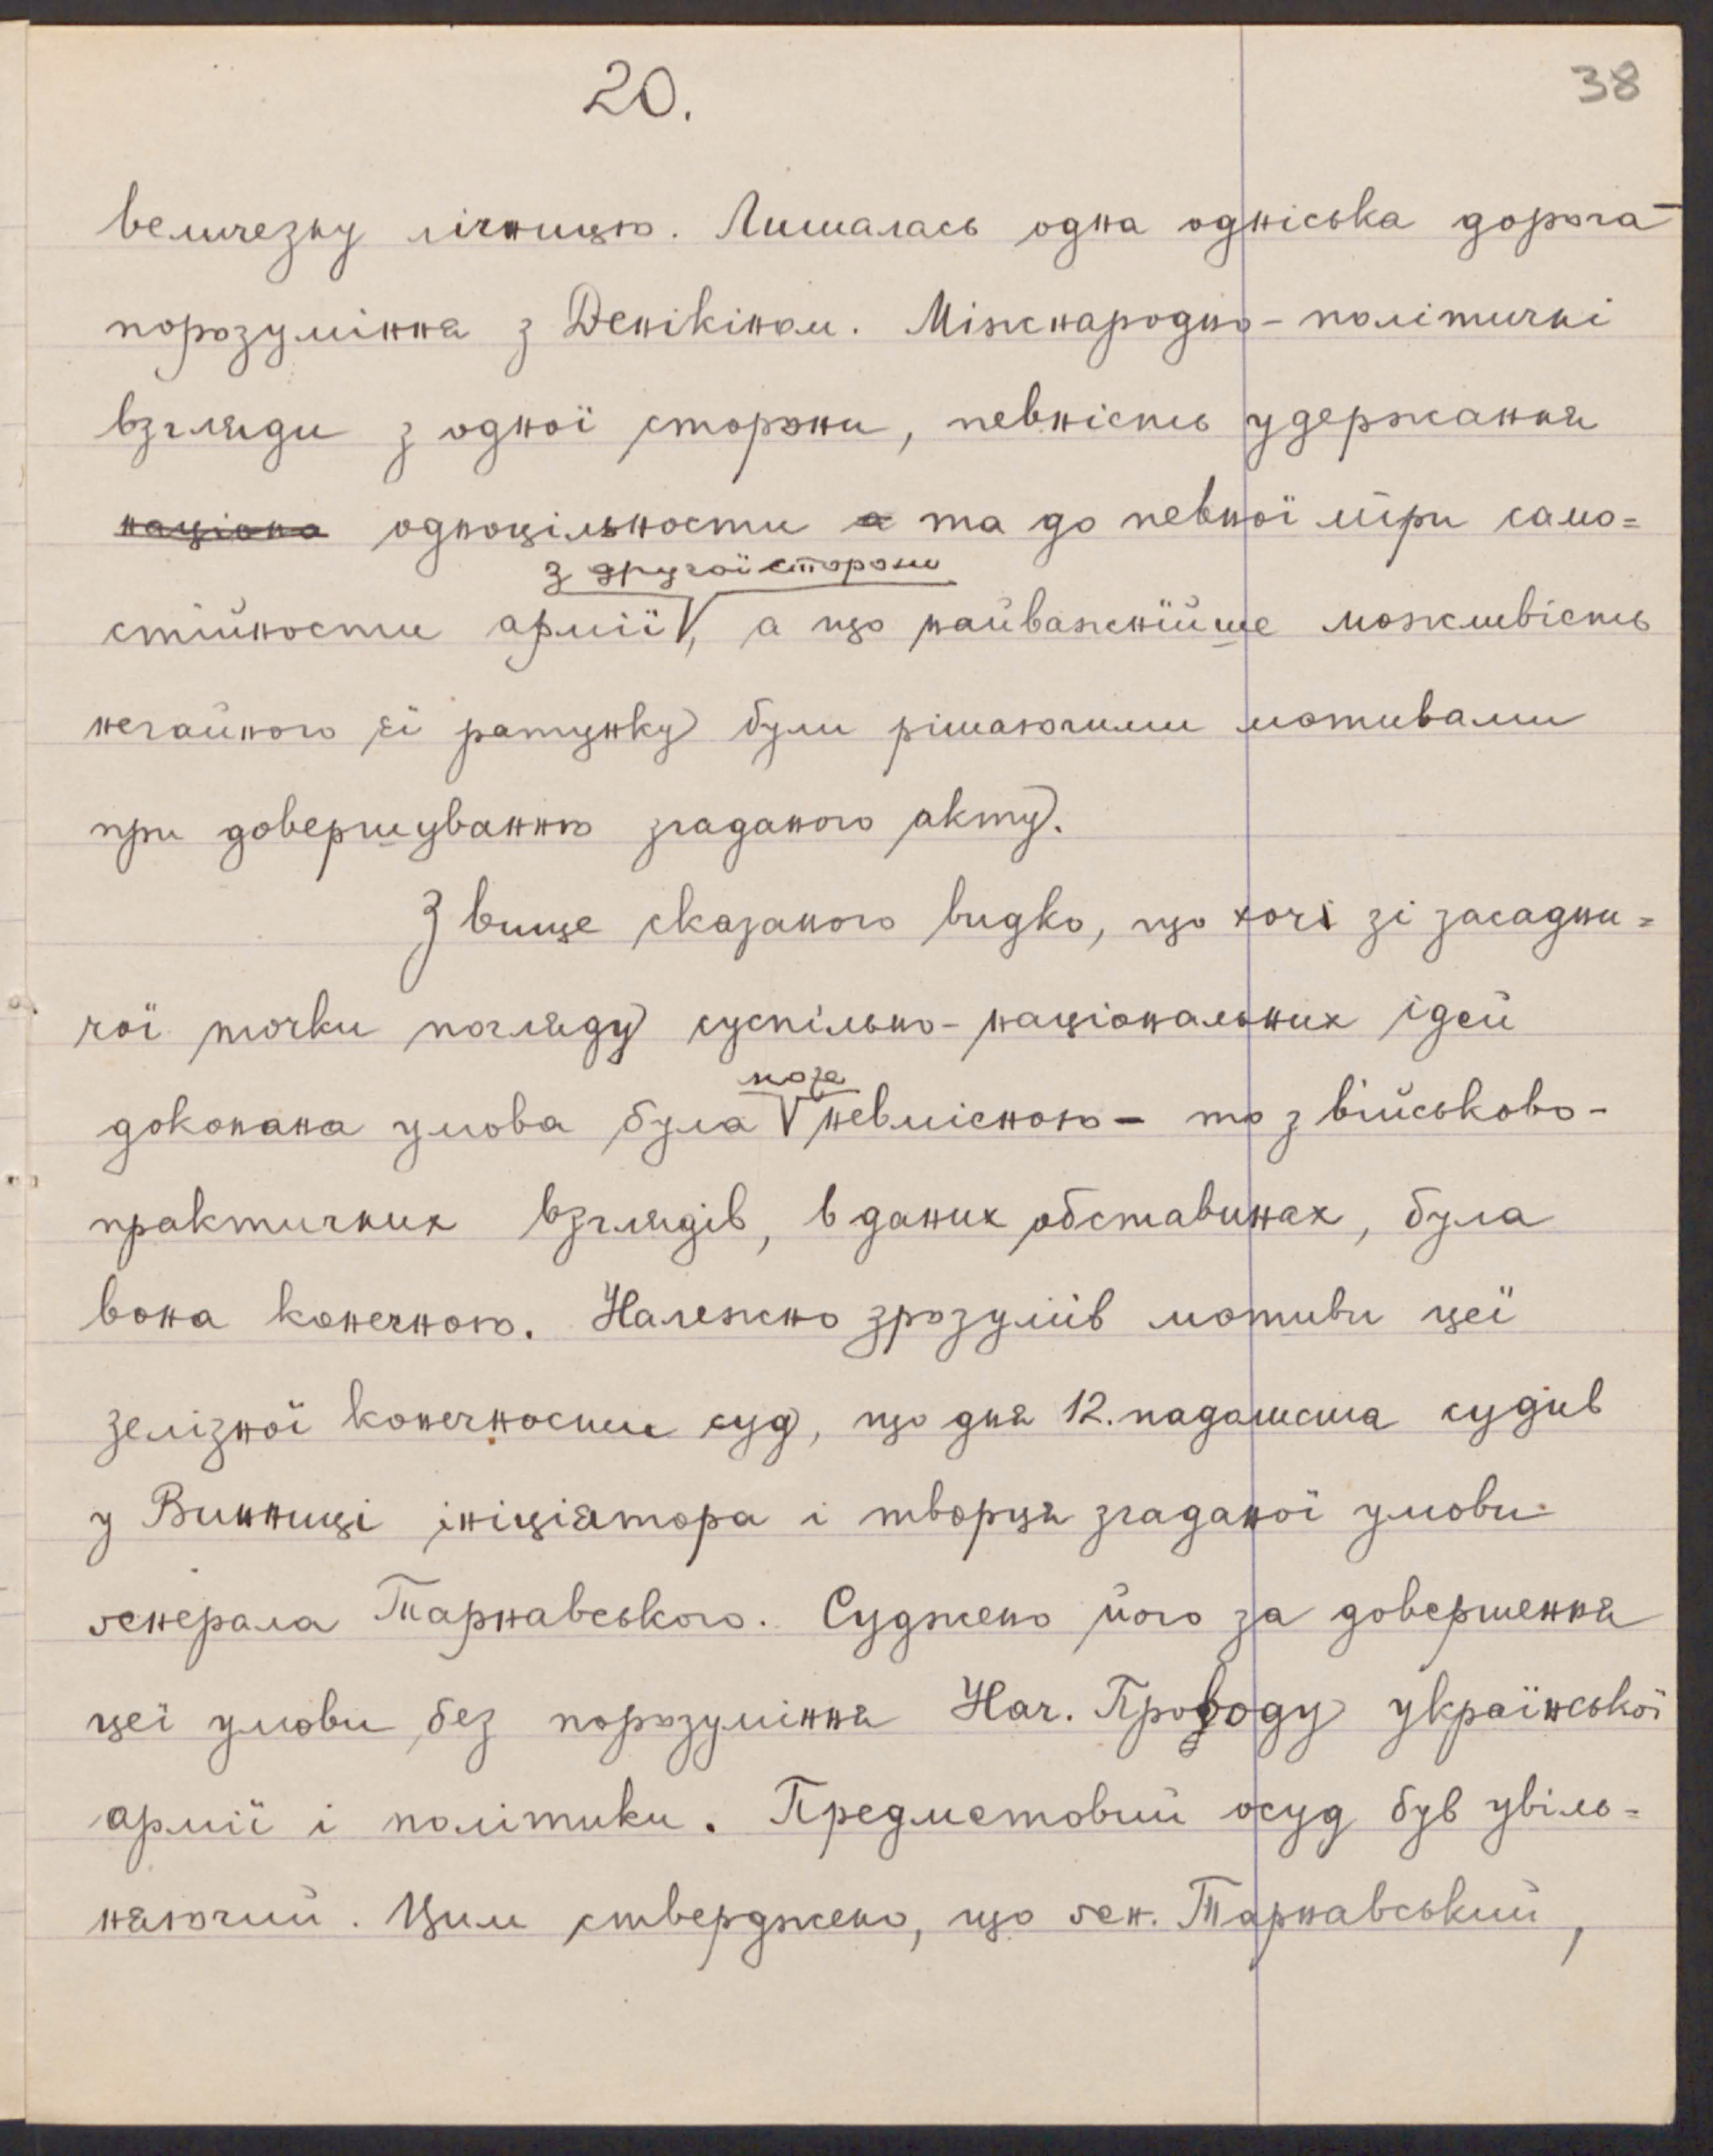 20.
38
величезну лічницю. Лишалась одна одніська дорога –
порозуміння з Денікіном. Міжнародно-політичні
взгляди з одної сторони, певність удержання
націона одноцільности а та до певної міри само=
з другої сторони
стійности армії, а що найважнійше можливість
негайного її ратунку були рішаючими мотивами
при довершуванню згаданого акту.
З вище сказаного видко, що хочі зі засадни=
чої точки погляду суспільно-національних ідей
може
доконана умова була невмісною – то з військово-
практичних взглядів, в даних обставинах, була
вона конечною. Належно зрозумів мотиви цеї
зелізної конечности суд, що дня 12. падолиста судив
у Винниці ініціятора і творця згаданої умови
ґенерала Тарнавського. Суджено його за довершення
цеї умови без порозуміння Нач. Проводу української
армії і політики. Предметовий осуд був увіль=
няючий. Цим стверджено, що ґен. Тарнавський,